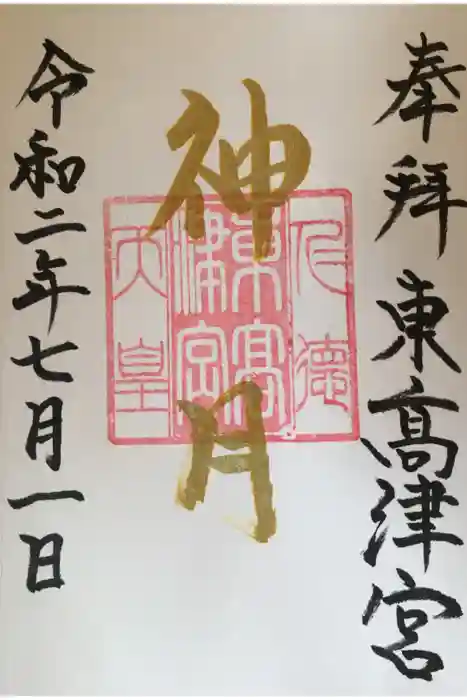 奉拝 東高津宮
神月
仁徳
東高
津宮
天皇
令和二年七月一日